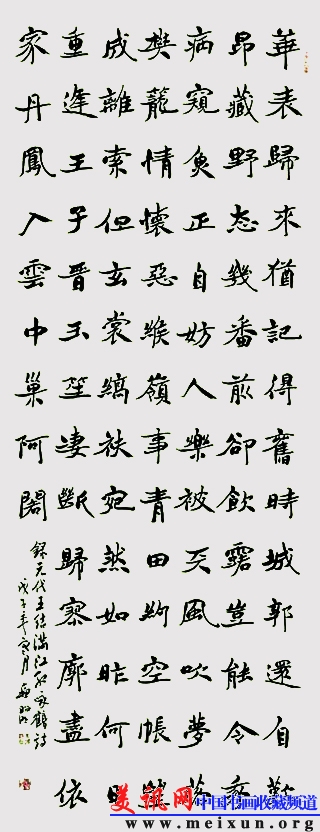 華表歸來猶記得舊時城郭還自歎
昂藏野态幾番前卻飲露豈能令
病窺魚正自妨人樂被天風吹夢落
樊籠情懷惡緱嶺事青田約空帳
成離索但玄裳縞袂宛然如昨何
重逢王子晋玉笙淒斷歸寥廓盡依
家丹鳳入雲中巢阿閣
錄元代王结滿江紅詠鶴詩
戊子年寒月
美讯网 中国书画收藏频道
www.meixun.org